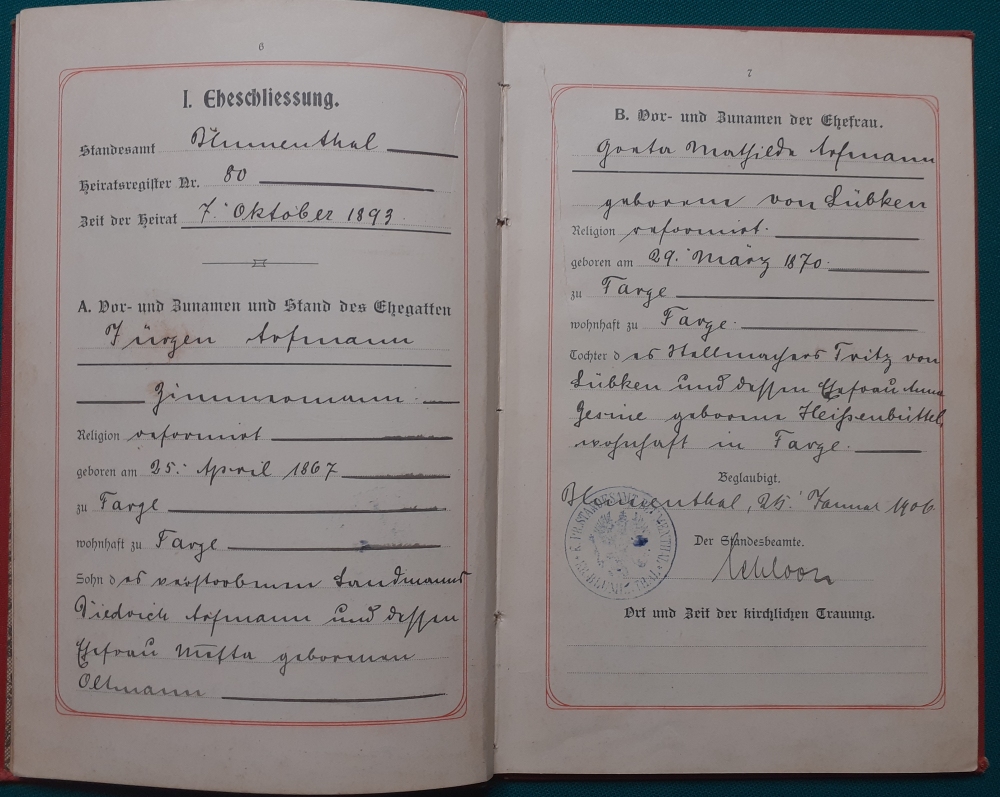 6
I. Eheschliessung.
Standesamt Blumenthal
Heiratsregister Nr. 80
Zeit der Heirat 7. Oktober 1893.
A. Vor- und Zunamen und Stand des Ehegatten
Jürgen Arfmann
Zimmermann.
Religion reformirt
geboren am 25. April 1867
zu Farge
wohnhaft zu Farge
Sohn des verstorbenen Landmanns
Diedrich Arfmann und dessen
Ehefrau Metta geborenen
Oltmann
7
B. Vor- und Zunamen der Ehefrau.
Greta Mathilde Arfmann
geborene von Lübken
Religion reformirt.
geboren am 29. März 1870.
zu Farge
wohnhaft zu Farge.
Tochter des Stellmachers Fritz von
Lübken und dessen Ehefrau Anna
Gesine geborene Heißenbüttel,
wohnhaft in Farge.
Beglaubigt.
Blumenthal, 25. Januar 1906.
Der Standesbeamte.
Ort und Zeit der kirchlichen Trauung.